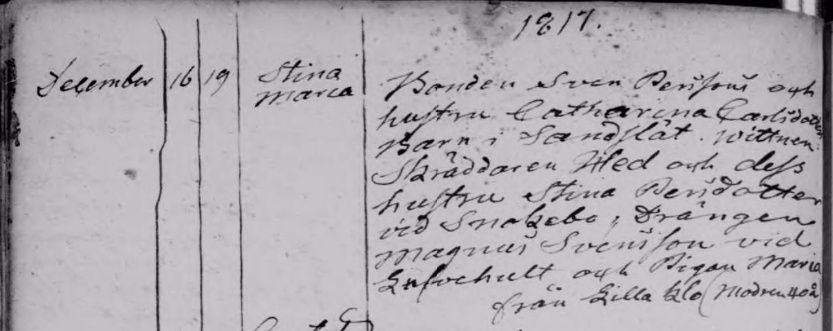 1817.
December 16 19 Stina Maria
Bonden Sven Perssons och
hustru Catharina Carlsdotter
Barn i Sandslät. Wittnen:
Skräddaren Hed och dess
hustru Stina Persdotter
vid Snokebo, Drängen
Magnus Svensson vid
och Pigan Maria
från Lilla Klo (Modren 40 år)